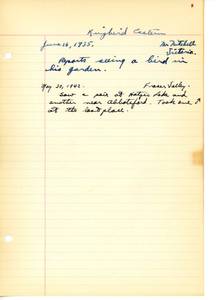 Kingbird Eastern
June 16, 1935. Mr. Mitchell
Victoria.
Reports seeing a bird in
his garden.
May 30, 1942. Fraser Valley.
Saw a pair at Hatzic Lake and
another near Abbotsford. Took one ♂
at the last place.